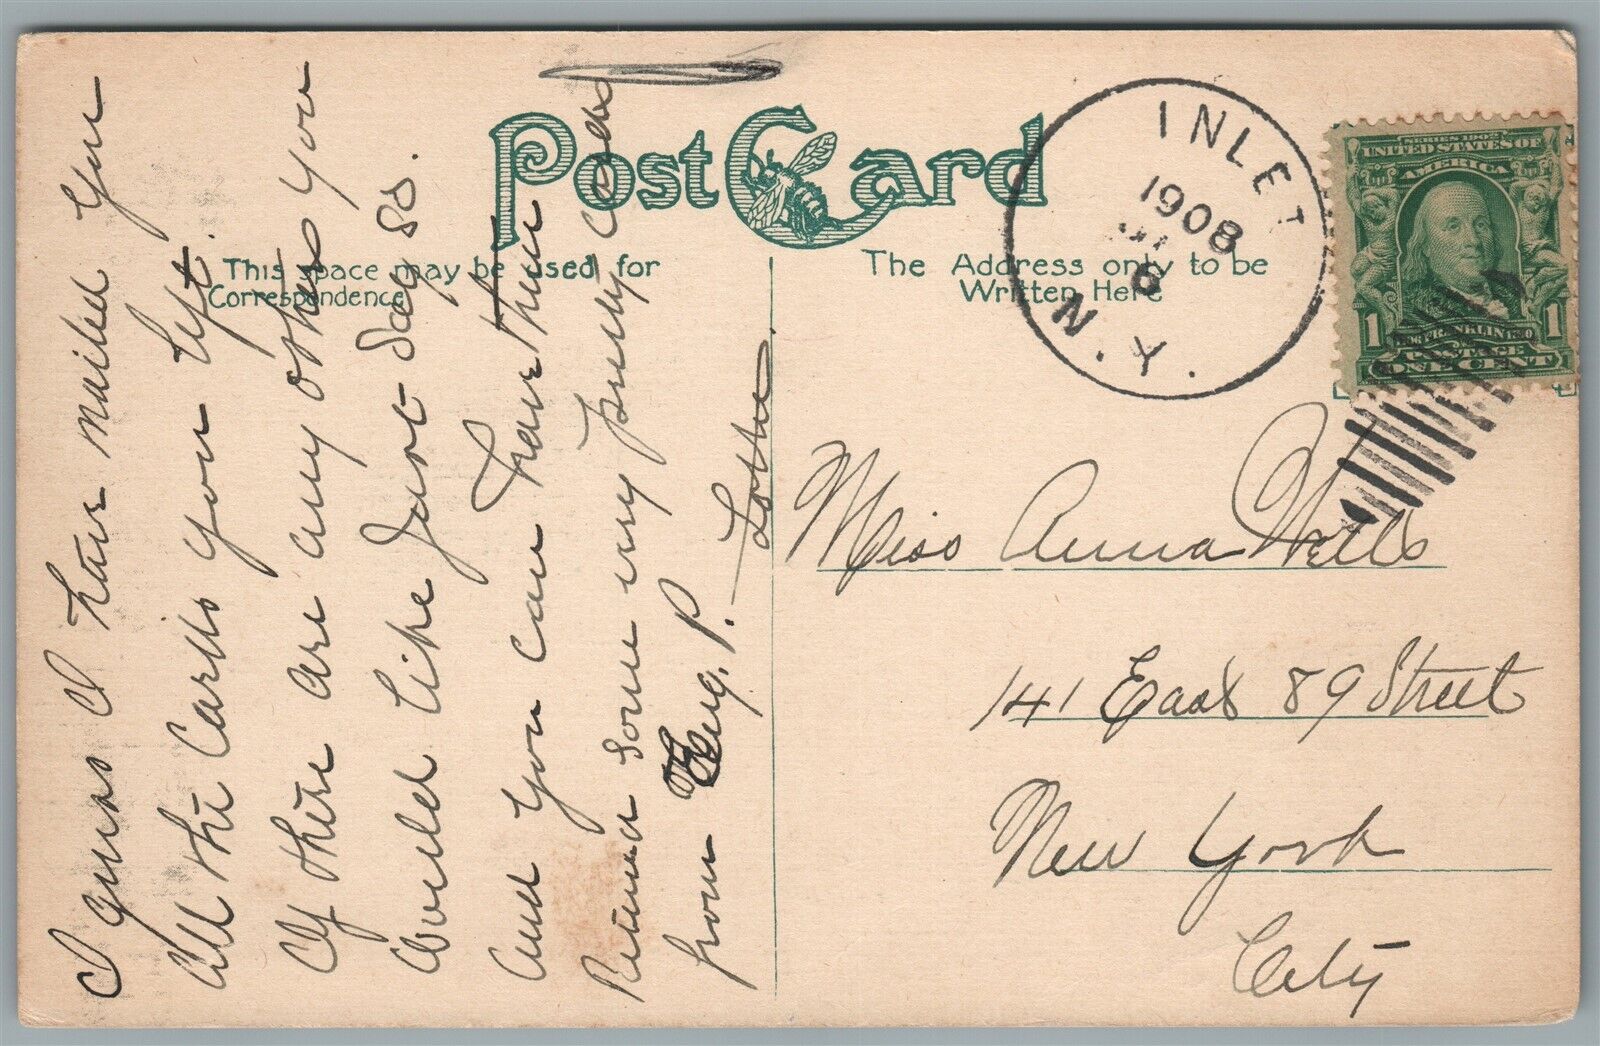 Post Card
This space may be used for
Correspondence
The Address only to be
Written Here
INLET
1908
6
N.Y.
SERIES 1902
UNITED STATES OF
AMERICA
1 FRANKLIN 1
POSTAGE
ONE CENT
I guess I have mailed you
all the Cards you left.
If there are any others you
would like just say so.
and you can have them
some very pretty Cards
from Eug. P. Lottie.
Miss Anna Wells
141 East 89 Street
New York
City